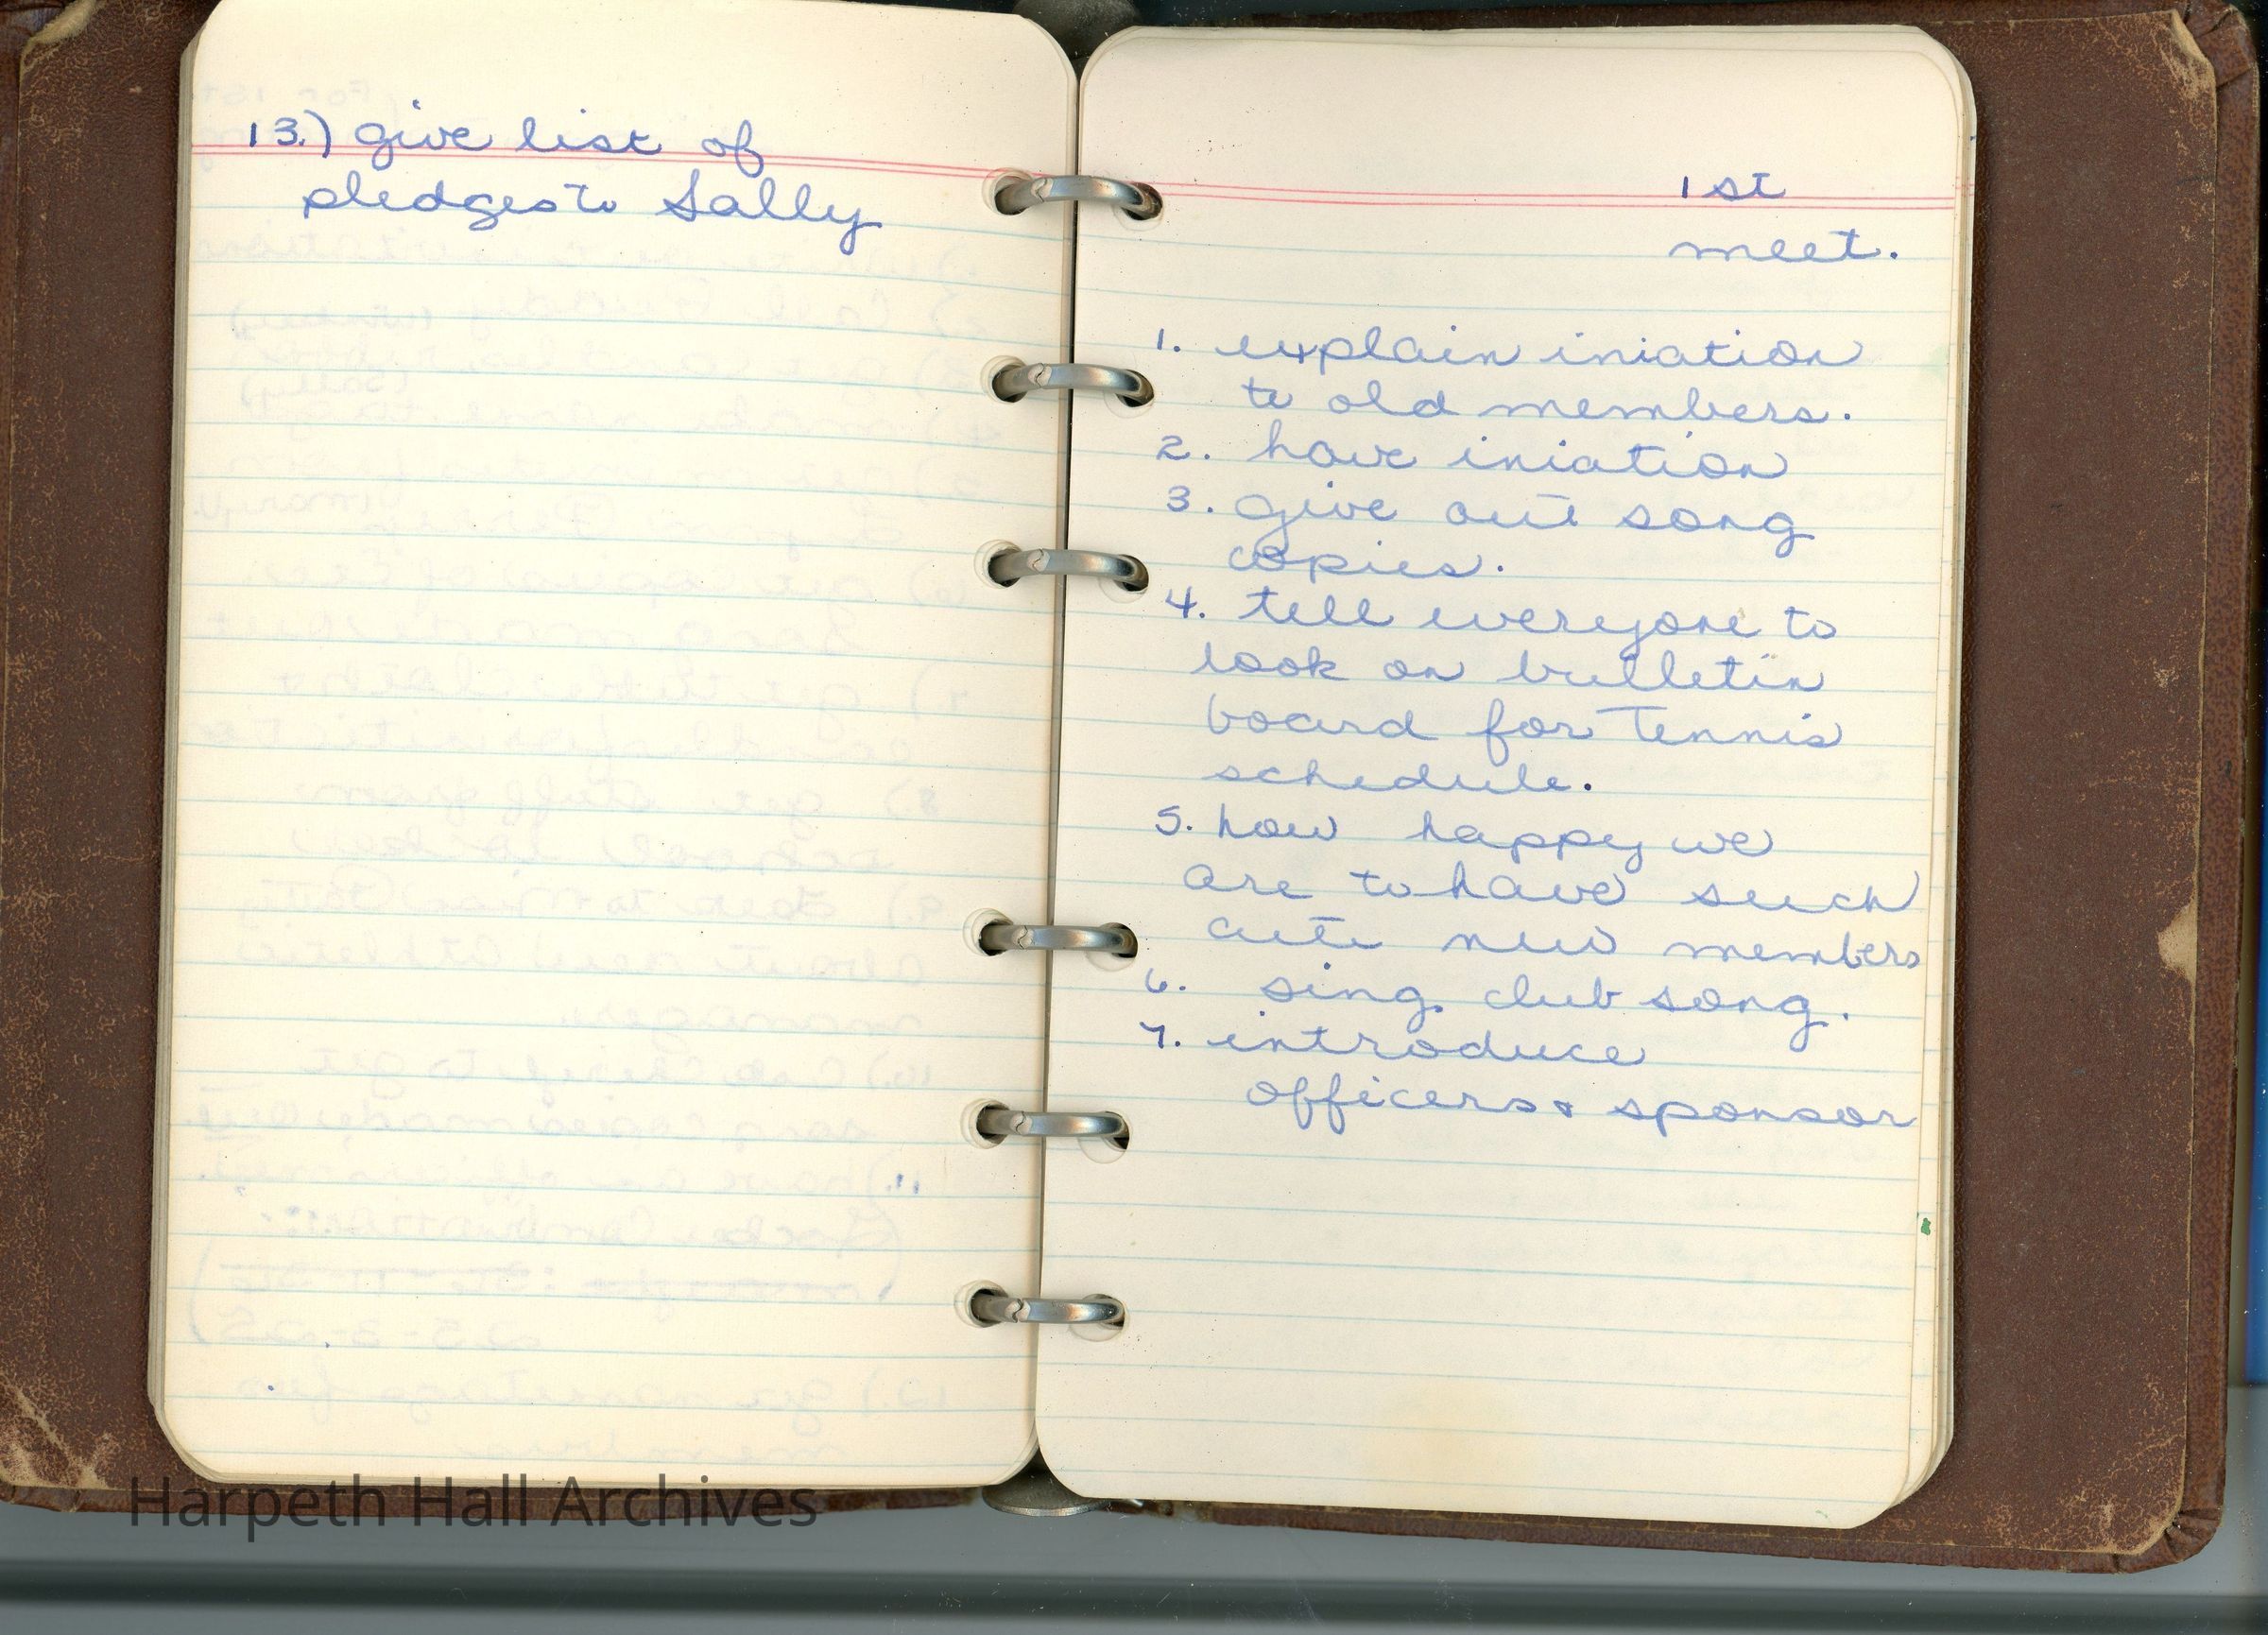 13.) give list of
pledges to Sally
1st
meet.
1. explain iniation
to old members.
2. have iniation
3. give out song
copies.
4. tell everyone to
look on bulletin
board for Tennis
schedule.
5. how happy we
are to have such
cute new members
6. sing club song.
7. introduce
officers & sponsor
Harpeth Hall Archives